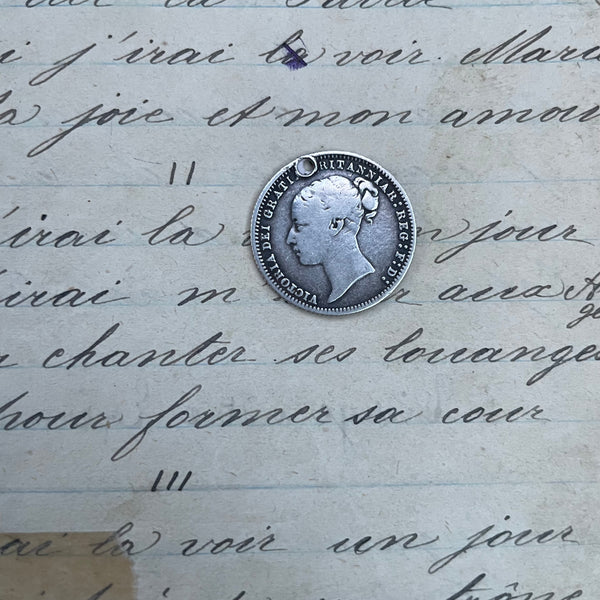 i j'irai la voir Marie
la joie et mon amou
II
'irai la un jour
'irai m aux
chanter ses louanges
pour former sa cour
III
ai la voir un jour
trône
VICTORIA DEI GRATI RITANNIAR: REG: F: D: